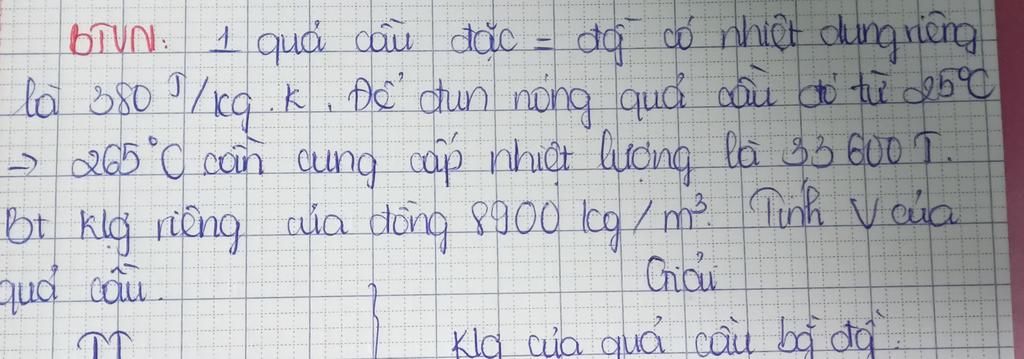 BTVN: 1 quả cầu đặc = đg̀ có nhiệt dung riêng
là 380 J/kg.K. Để đun nóng quả cầu đó từ 25°C
→ 265°C cần cung cấp nhiệt lượng là 33 600 J.
Bt klg riêng của đồng 8900 kg/m³. Tính V của
quả cầu.
Giải
TT
Klg của quả cầu bg̀ đg̀: